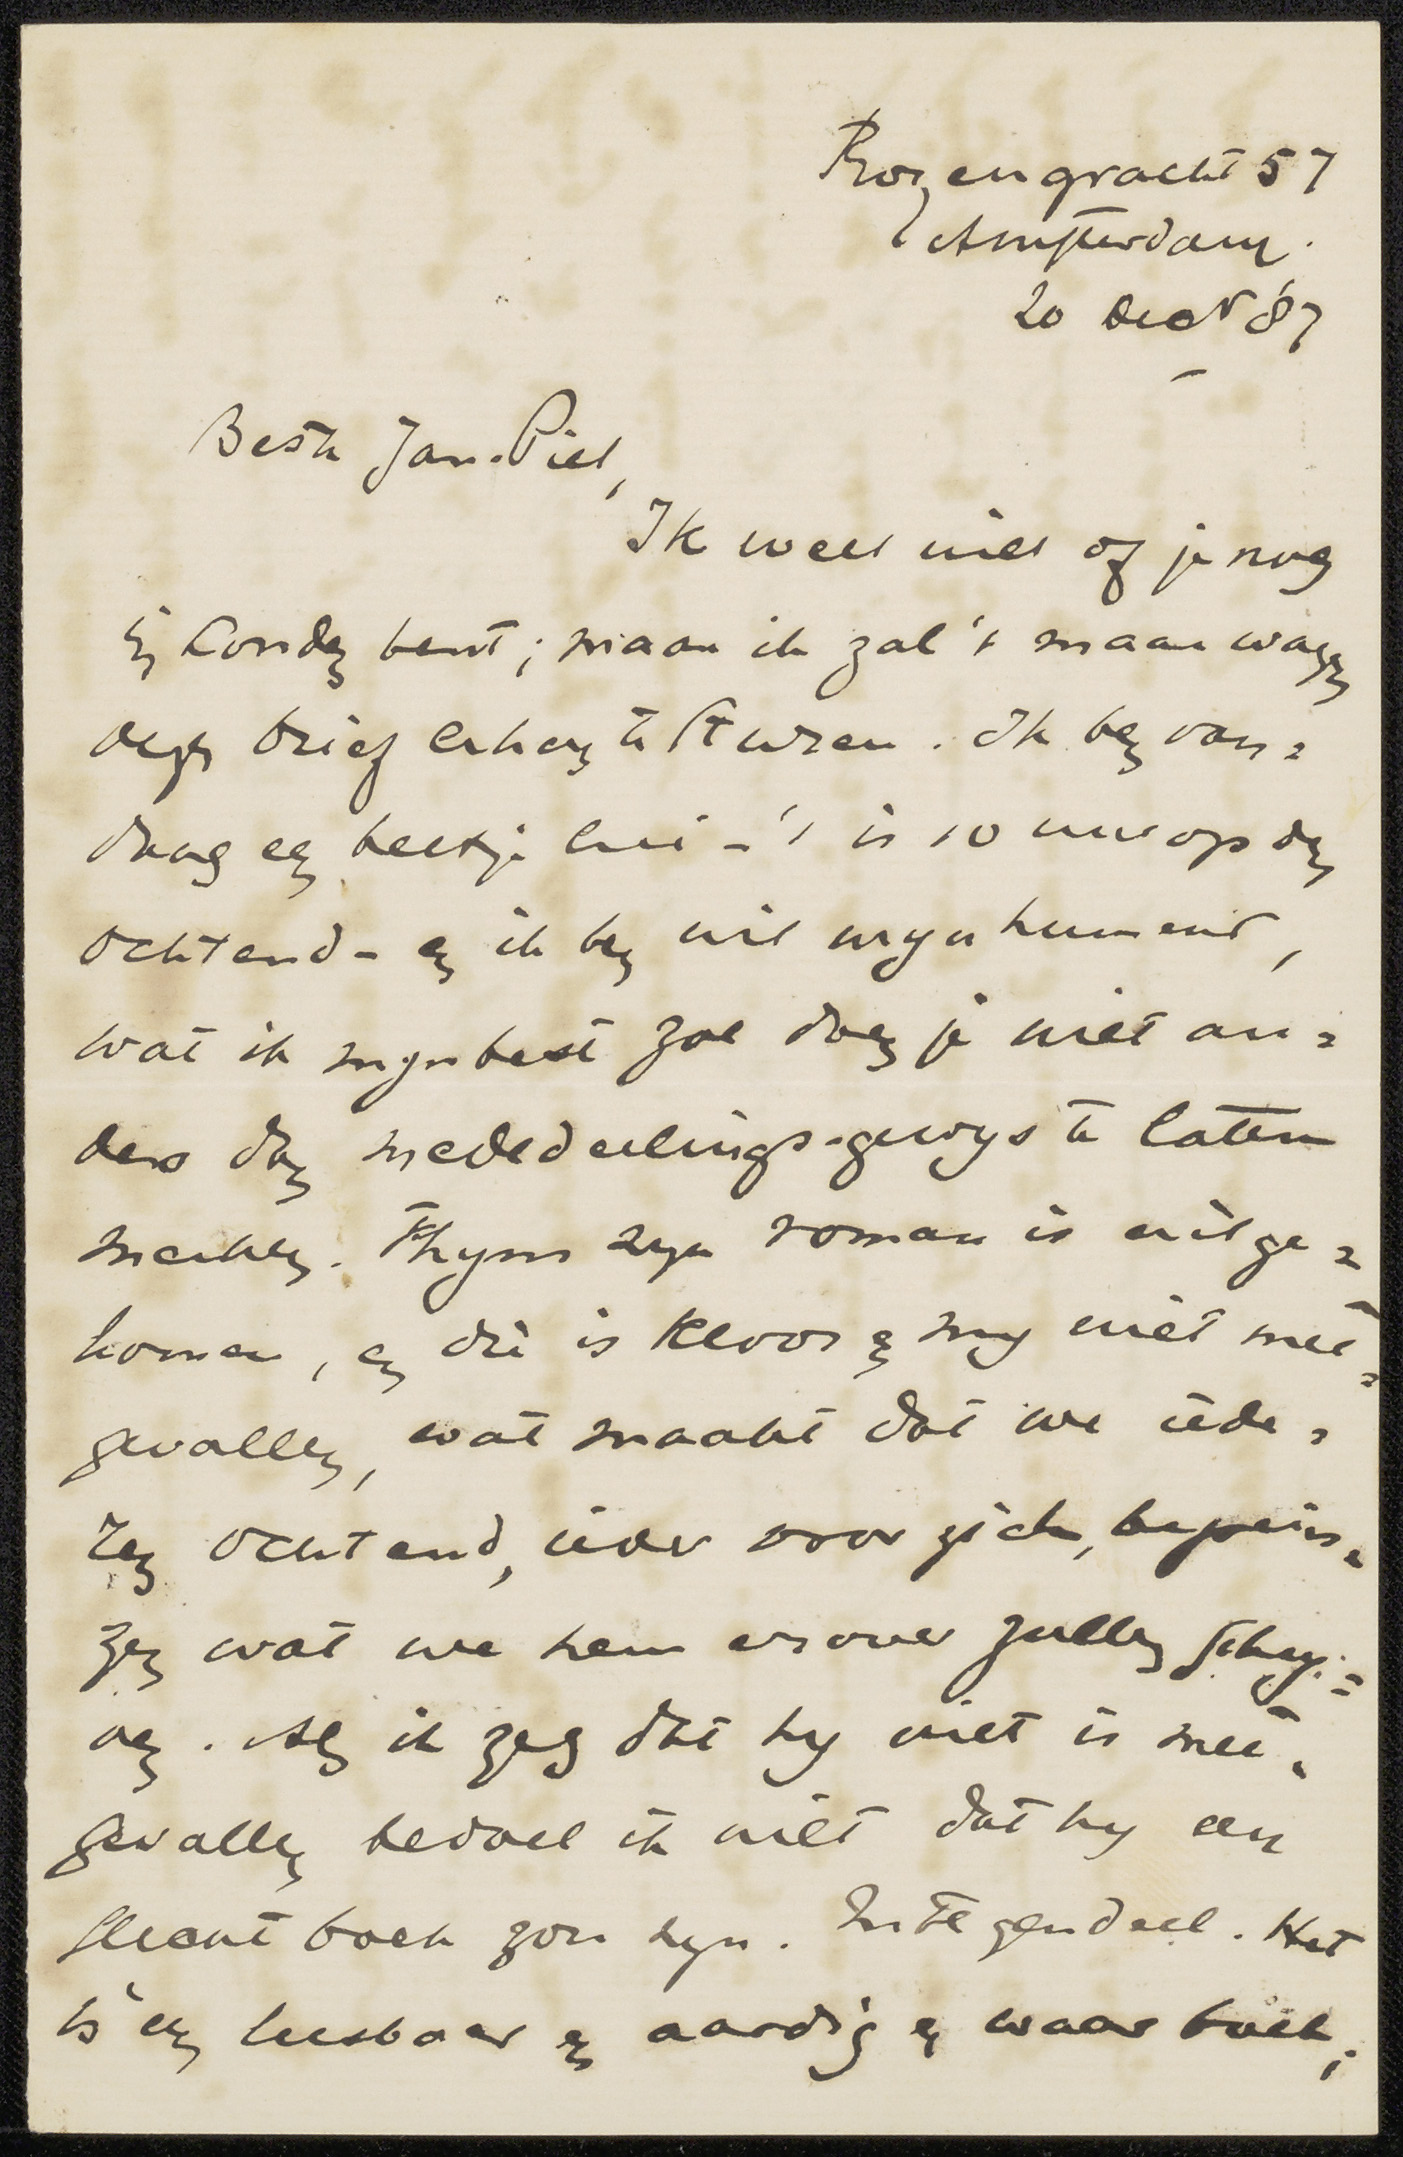 Rozengracht 57
Amsterdam.
20 Decr '87
Beste Jan-Piet,
Ik weet niet of je nog
in Londen bent; maar ik zal 't maar wagen
dezen brief erheen te sturen. Ik ben van=
daag een beetje lui - 't is 10 uur op den
ochtend - en ik ben uit mijn humeur,
wat ik mijn best zal doen je niet an=
ders dan mededeelings-gewijs te laten
merken. Thijm zijn roman is uitge=
komen, en die is Kloos en mij niet mee=
gevallen, wat maakt dat we iede=
ren ochtend, ieder voor zich, bepein=
zen wat we hem erover zullen schrij=
ven. Als ik zeg dat hij niet is mee=
gevallen bedoel ik niet dat hij een
slecht boek zou zijn. Integendeel. Het
is een leesbaar en aardig en waar boek;